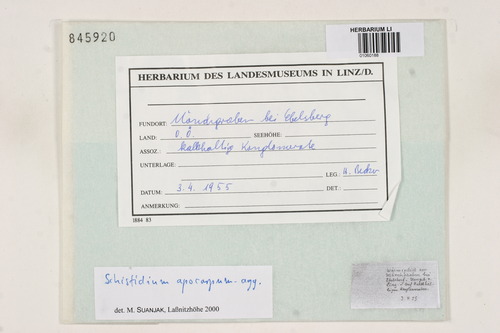 845920
HERBARIUM LI
01060166
HERBARIUM DES LANDESMUSEUMS IN LINZ/D.
FUNDORT: Mönchgraben bei Ebelsberg
LAND: O.Ö. SEEHÖHE:
ASSOZ.: kalkhaltig Konglomerate
UNTERLAGE:
LEG.: H. Becker
DATUM: 3.4.1955 DET.:
ANMERKUNG:
1884 83
Schistidium apocarpum agg.
det. M. SUANJAK, Laßnitzhöhe 2000